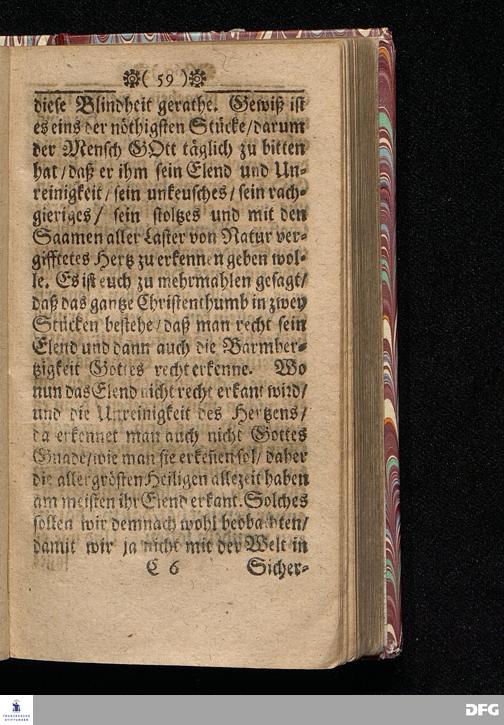 ( 59 )
dieſe Blindheit gerathe. Gewiß iſt
es eins der nöthigſten Stücke/darum
der Menſch GOtt täglich zu bitten
hat/daß er ihm ſein Elend und Un-
reinigkeit/ſein unkeuſches/ſein rach-
gieriges/ ſein ſtoltzes und mit den
Saamen aller Laſter von Natur ver-
gifftetes Hertz zu erkennen geben wol-
le. Es iſt euch zu mehrmahlen geſagt/
daß das gantze Chriſtenthumb in zwey
Stücken beſtehe/daß man recht ſein
Elend und dann auch die Barmher-
tzigkeit Gottes recht erkenne. Wo
nun das Elend nicht recht erkant wird/
und die Unreinigkeit des Hertzens/
da erkennet man auch nicht Gottes
Gnade/wie man ſie erkeñen ſol/daher
die allergröſten Heiligen allezeit haben
am meiſten ihr Elend erkant. Solches
ſollen wir demnach wohl beobachten/
damit wir ja nicht mit der Welt in
C 6 Sicher-
FRANCKESCHE
STIFTUNGEN
DFG